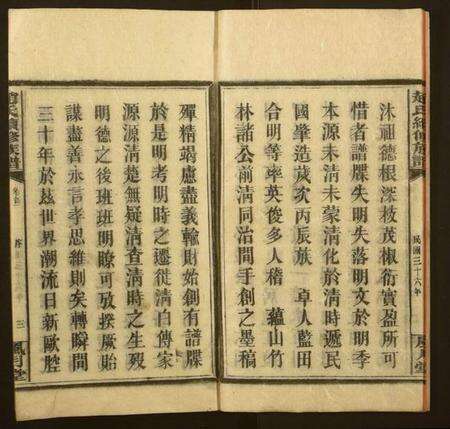 趙氏續修族譜
民國三十六年
沐祖德根深枝茂椒衍實盈所可
惜者譜牒失明失落明文於明季
本源未清未蒙清化於清時遞民
國肇造歲次丙辰族 卓人藍田
合明等率英俊多人稽 蘊山竹
林諸公前清同治間手創之墨稿
殫精竭慮盡義輸財始創有譜牒
於是明考明時之遷徙清白傳家
源源清楚無疑清查清時之生歿
明德之後班班明瞭可攷揆厥貽
謀盡善永言孝思維則矣轉瞬間
三十年於茲世界潮流日新歐腔
趙氏續修族譜
卷首
序
三